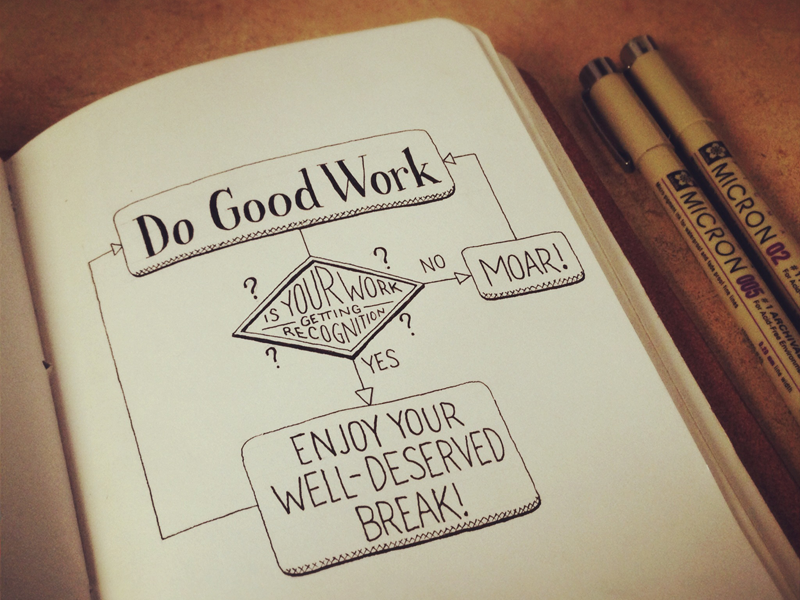 Do Good Work
IS YOUR WORK
GETTING
RECOGNITION
?
?
?
?
NO
MOAR!
YES
ENJOY YOUR
WELL-DESERVED
BREAK!
MICRON 02
MICRON 005